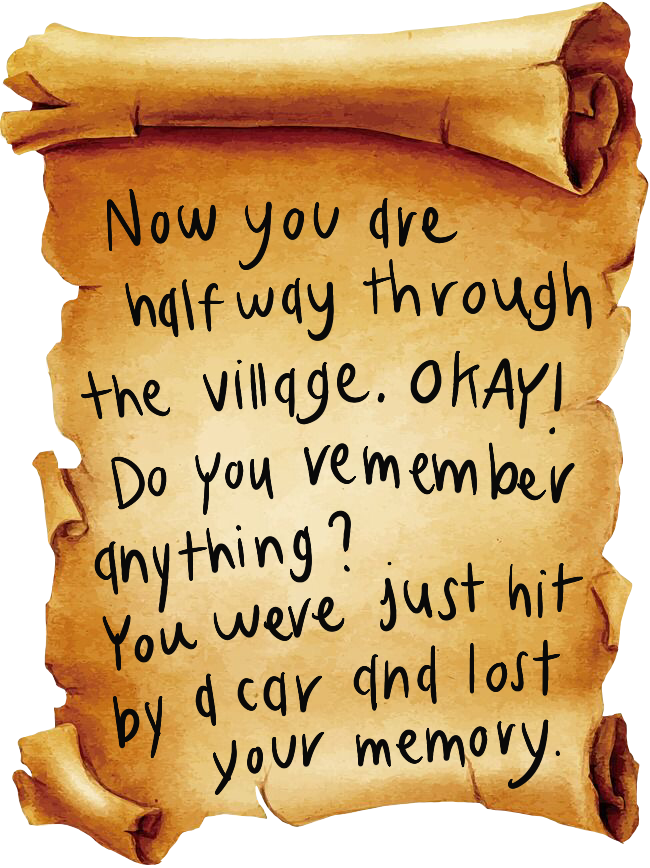 Now you are
half way through
the village. OKAY!
Do you remember
anything?
You were just hit
by a car and lost
your memory.